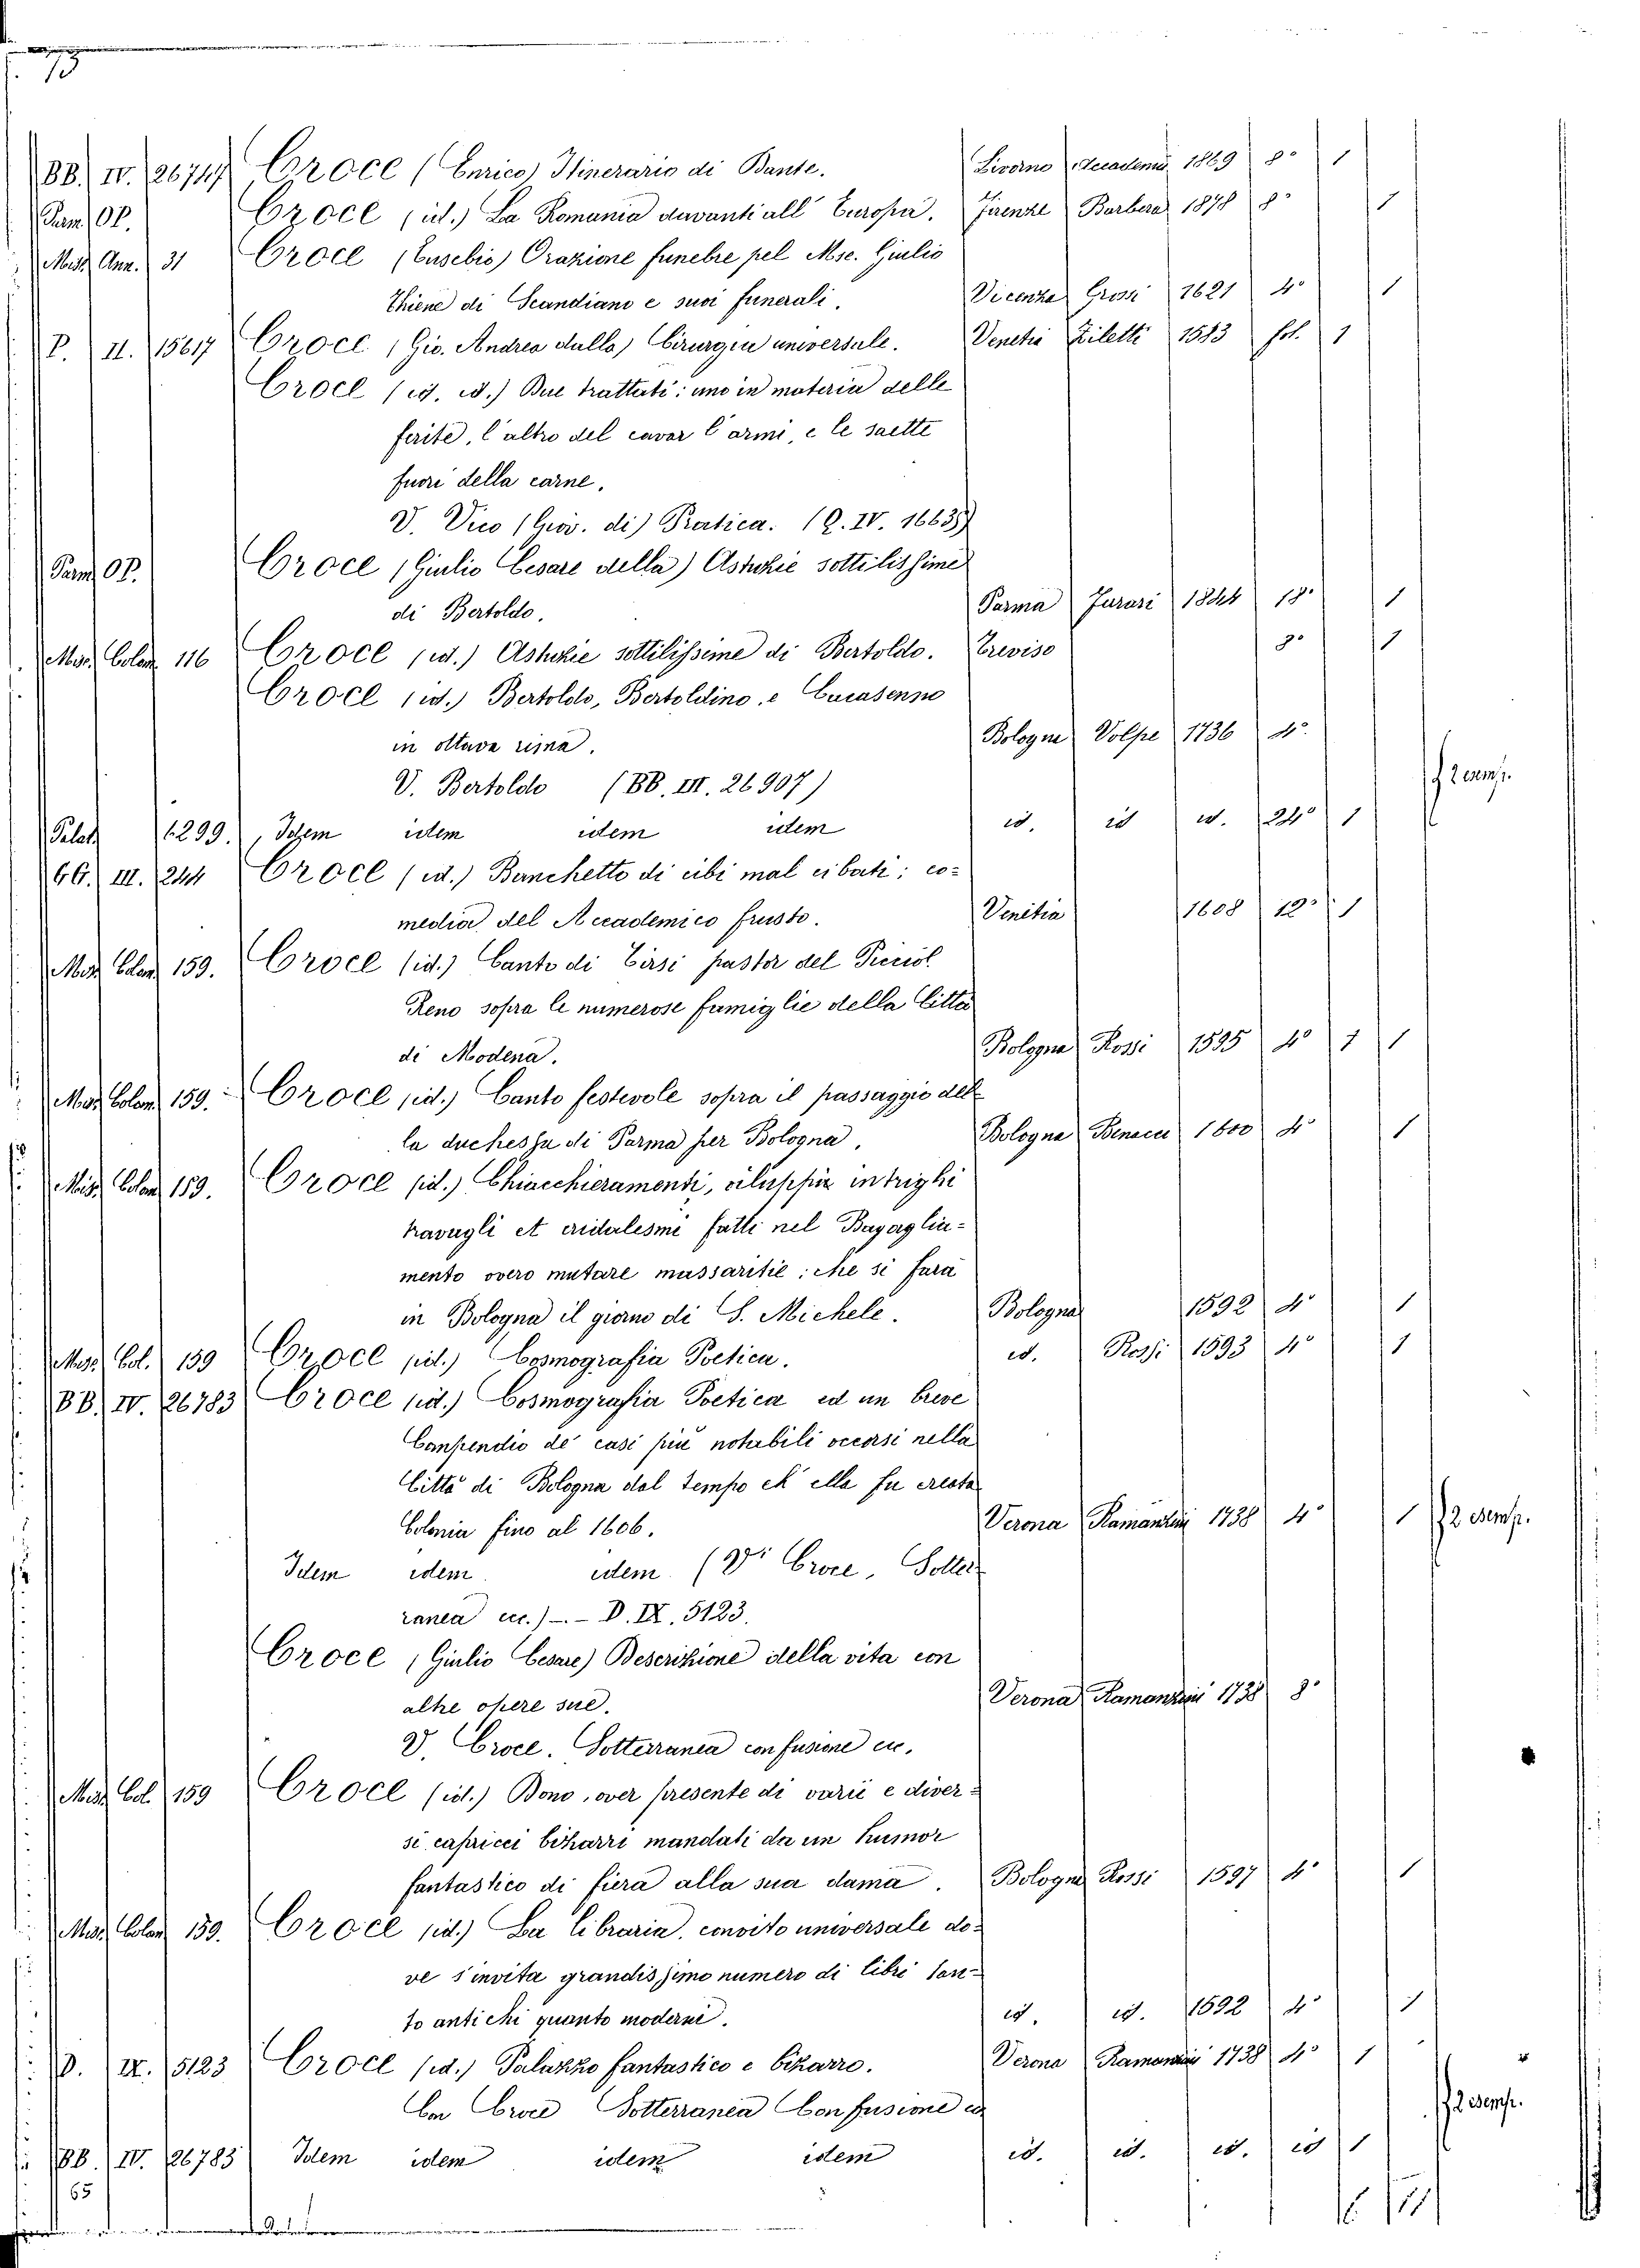 73
BB. IV. 26747 Croce (Enrico) Itinerario di Dante. Livorno 1869 8° 1
Parm. OP. Croce (id.) La Romania davanti all' Europa. Firenze Barbera 1878 8° 1
Misc. Ann. 31 Croce (Eusebio) Orazione funebre pel Mse. Giulio
Thiene di Scandiano e suoi funerali. Vicenza Grossi 1621 4° 1
P. II. 15617 Croce (Gio. Andrea dalla) Cirurgia universale. Venetia Ziletti 1583 fol. 1
Croce (id. id.) Due trattati: uno in materia delle
ferite, l'altro del cavar l'armi, e le saette
fuori della carne.
V. Vico (Giov. di) Pratica. (Q. IV. 1663)
Parm. OP. Croce (Giulio Cesare della) Astuzie sottilissime
di Bertoldo. Parma 1844 18° 1
Misc. Colom. 116 Croce (id.) Astuzie sottilissime di Bertoldo. Treviso 8° 1
Croce (id.) Bertoldo, Bertoldino, e Cacasenno
in ottava rima. Bologna Volpe 1736 4°
V. Bertoldo (BB. III. 26907)
2 esemp.
Palat. 6299. Idem idem idem idem id. id id. 24° 1
GG. III. 244 Croce (id.) Banchetto di cibi mal cibati; co=
media del Accademico frusto. Venitia 1608 12° 1
Misc. Colom. 159. Croce (id.) Canto di Tirsi pastor del Picciol
Reno sopra le numerose famiglie della Città
di Modena. Bologna Rossi 1595 4° 1 1
Misc. Colom. 159. Croce (id.) Canto festevole sopra il passaggio del
la duchessa di Parma per Bologna. Bologna Benacci 1600 4° 1
Misc. Colom. 159. Croce (id.) Chiacchieramenti, viluppi, intrighi
travagli et cridalesmi fatti nel Bagaglia=
mento overo mutare massaritie; che si farà
in Bologna il giorno di S. Michele. Bologna 1592 4° 1
Misc. Col. 159 Croce (id.) Cosmografia Poetica. id. Rossi 1593 4° 1
BB. IV. 26783 Croce (id.) Cosmografia Poetica ed un breve
Conpendio de' casi più notabili occorsi nella
Città di Bologna dal tempo ch' ella fu creata
Colonia fino al 1606. Verona Ramanzini 1738 4° 1 2 esemp.
Idem idem idem (Vi Croce, Sotter
ranea ecc.) — D. IX. 5123.
Croce (Giulio Cesare) Descrizione della vita con
altre opere sue. Verona Ramanzini 1738 8°
V. Croce. Sotterranea confusione ec.
Misc. Col. 159 Croce (id.) Dono, over presente di varii e diver=
si capricci bizarri mandati da un humor
fantastico di fiera alla sua dama. Bologna Rossi 1597 4° 1
Misc. Colom. 159. Croce (id.) La libraria, convito universale do=
ve s'invita grandissimo numero di libri tan=
to antichi quanto moderni. id. id. 1592 4° 1
D. IX. 5123 Croce (id.) Palazzo fantastico e bizarro. Verona Ramanzini 1738 4° 1
Con Croce Sotterranea Confusione ec
2 esemp.
BB. IV. 26783 Idem idem idem idem id. id. id. id 1
65